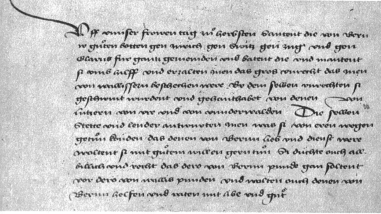 Uff unser frowen tag im herbsten santent die von Bern
ir guten botten gen gen Switz gen und gen
Glarus fur gantz gemeinden und batent die und mantent
si umb hilff und erzalten inen das gros unrecht das inen
von wallissern beschechen were Be dem selben unrechten si
geschirmt wurdent und gehanthabet von denen von
lutzern von ure und von underwalden Die selben
Stette und lender antwurten inen was si von eren wegen
getun kunden das denen von Bernn lieb und dienst were
woltent si mit gutem willen gern tun Si duchte ouch all
billich und recht das dero von Bernn punde gan soltent
vor dero von wallis punden und wolten ouch denen von
Bernn helfen und raten mit libe und gut